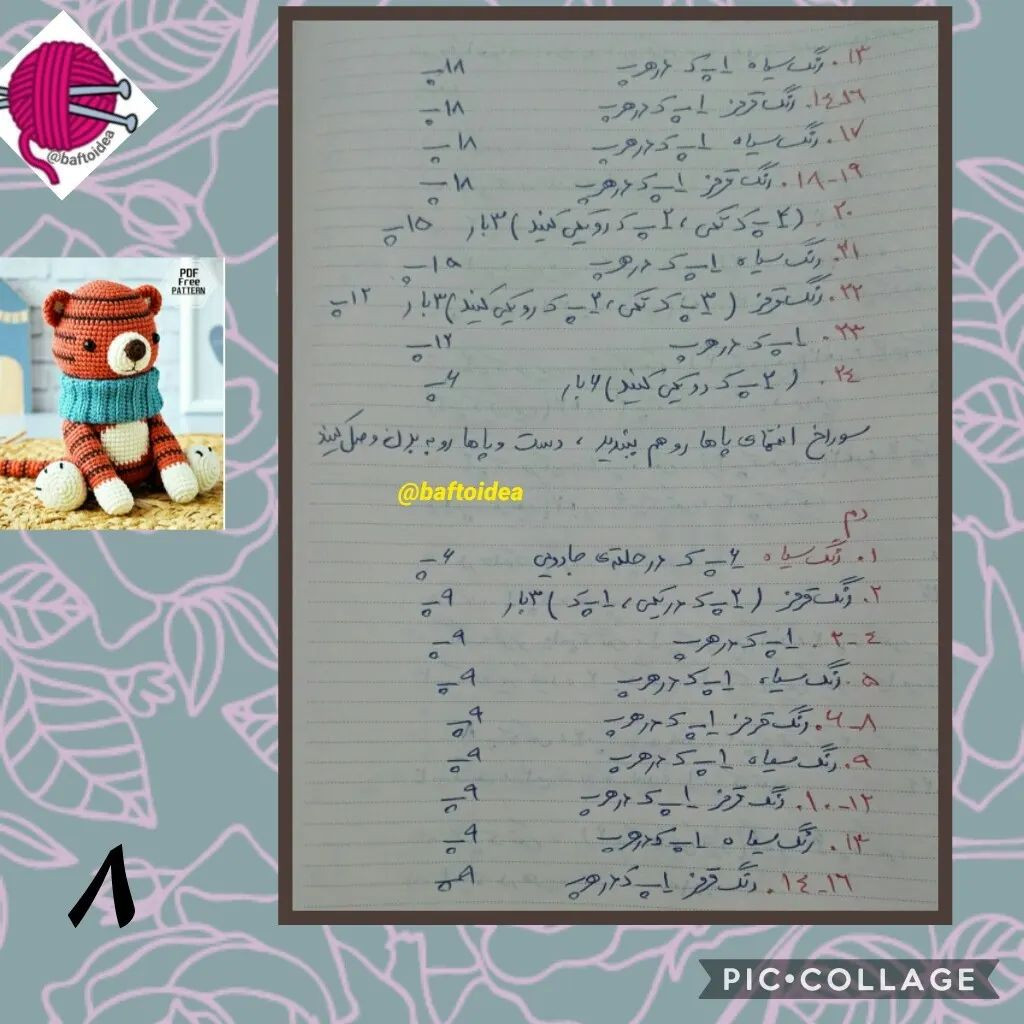 @baftoidea
PDF
Free
PATTERN
۱۳. رنگ سیاه ۱پ ک در هر پ ۱۸پ
۱۴-۱۶. رنگ قرمز ۱پ ک در هر پ ۱۸پ
۱۷. رنگ سیاه ۱پ ک در هر پ ۱۸پ
۱۸-۱۹. رنگ قرمز ۱پ ک در هر پ ۱۸پ
۲۰. (۴پ ک تکی، ۲پ ک رو یکی کنید) ۳بار ۱۵پ
۲۱. رنگ سیاه ۱پ ک در هر پ ۱۵پ
۲۲. رنگ قرمز (۳پ ک تکی، ۲پ ک رو یکی کنید) ۳بار ۱۲پ
۲۳. ۱پ ک در هر پ ۱۲پ
۲٤. (۲پ ک رو یکی کنید) ۶بار ۶پ
سوراخ انتهای پاها رو هم ببندید، دست و پاها رو به بدن وصل کنید
@baftoidea
دم
۱. رنگ سیاه ۶پ ک در حلقه‌ی جادویی ۶پ
۲. رنگ قرمز (۲پ ک در یکی، ۱پ ک) ۳بار ۹پ
۳-٤. ۱پ ک در هر پ ۹پ
۵. رنگ سیاه ۱پ ک در هر پ ۹پ
۶-۸. رنگ قرمز ۱پ ک در هر پ ۹پ
۹. رنگ سیاه ۱پ ک در هر پ ۹پ
۱۰-۱۲. رنگ قرمز ۱پ ک در هر پ ۹پ
۱۳. رنگ سیاه ۱پ ک در هر پ ۹پ
۱٤-۱۶. رنگ قرمز ۱پ ک در هر پ ۹پ
۸
PIC•COLLAGE